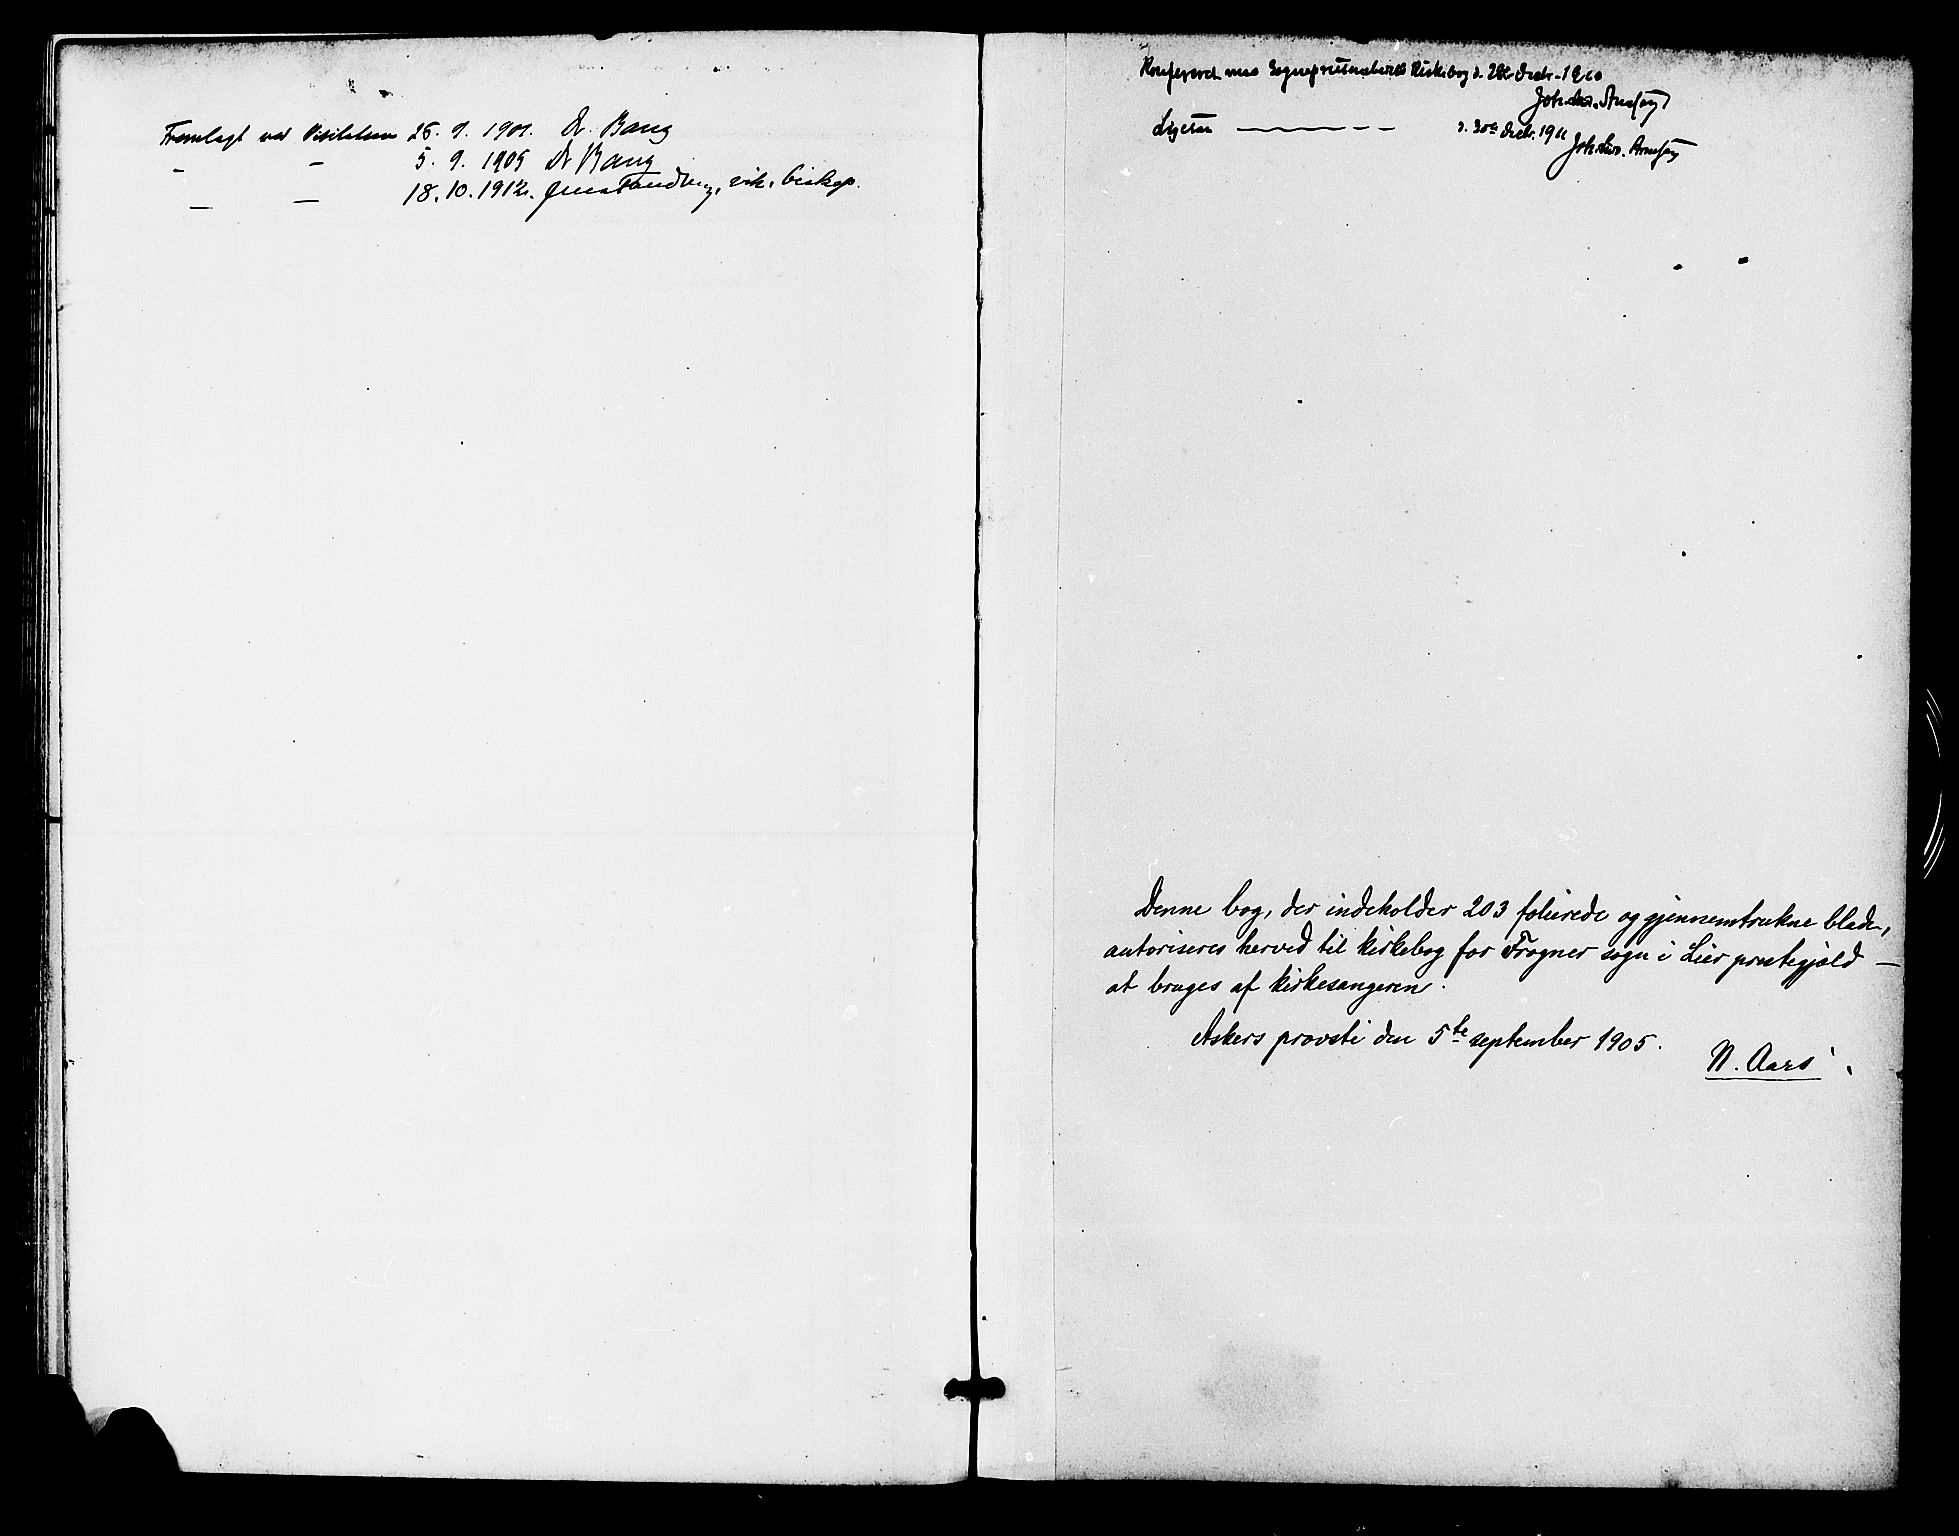 Fremlagt ved Visitatsen 26. 9. 1901. Dr. Bang
- - 5. 9. 1905 Dr Bang
— — 18. 10. 1912. Jens Tandberg, vik. biskop.
Konfereret med Sogneprestembedets Kirkebog d. 28de Decbr. 1910
Ligesaa — — — d. 30te Decbr. 1911
Denne bog, der indeholder 203 folierede og gjennemtrukne blade,
autoriseres herved til kirkebog for Frogner sogn i Lier prestegjeld —
at bruges af kirkesangeren.
Askers provsti den 5te september 1905.
N. Aars